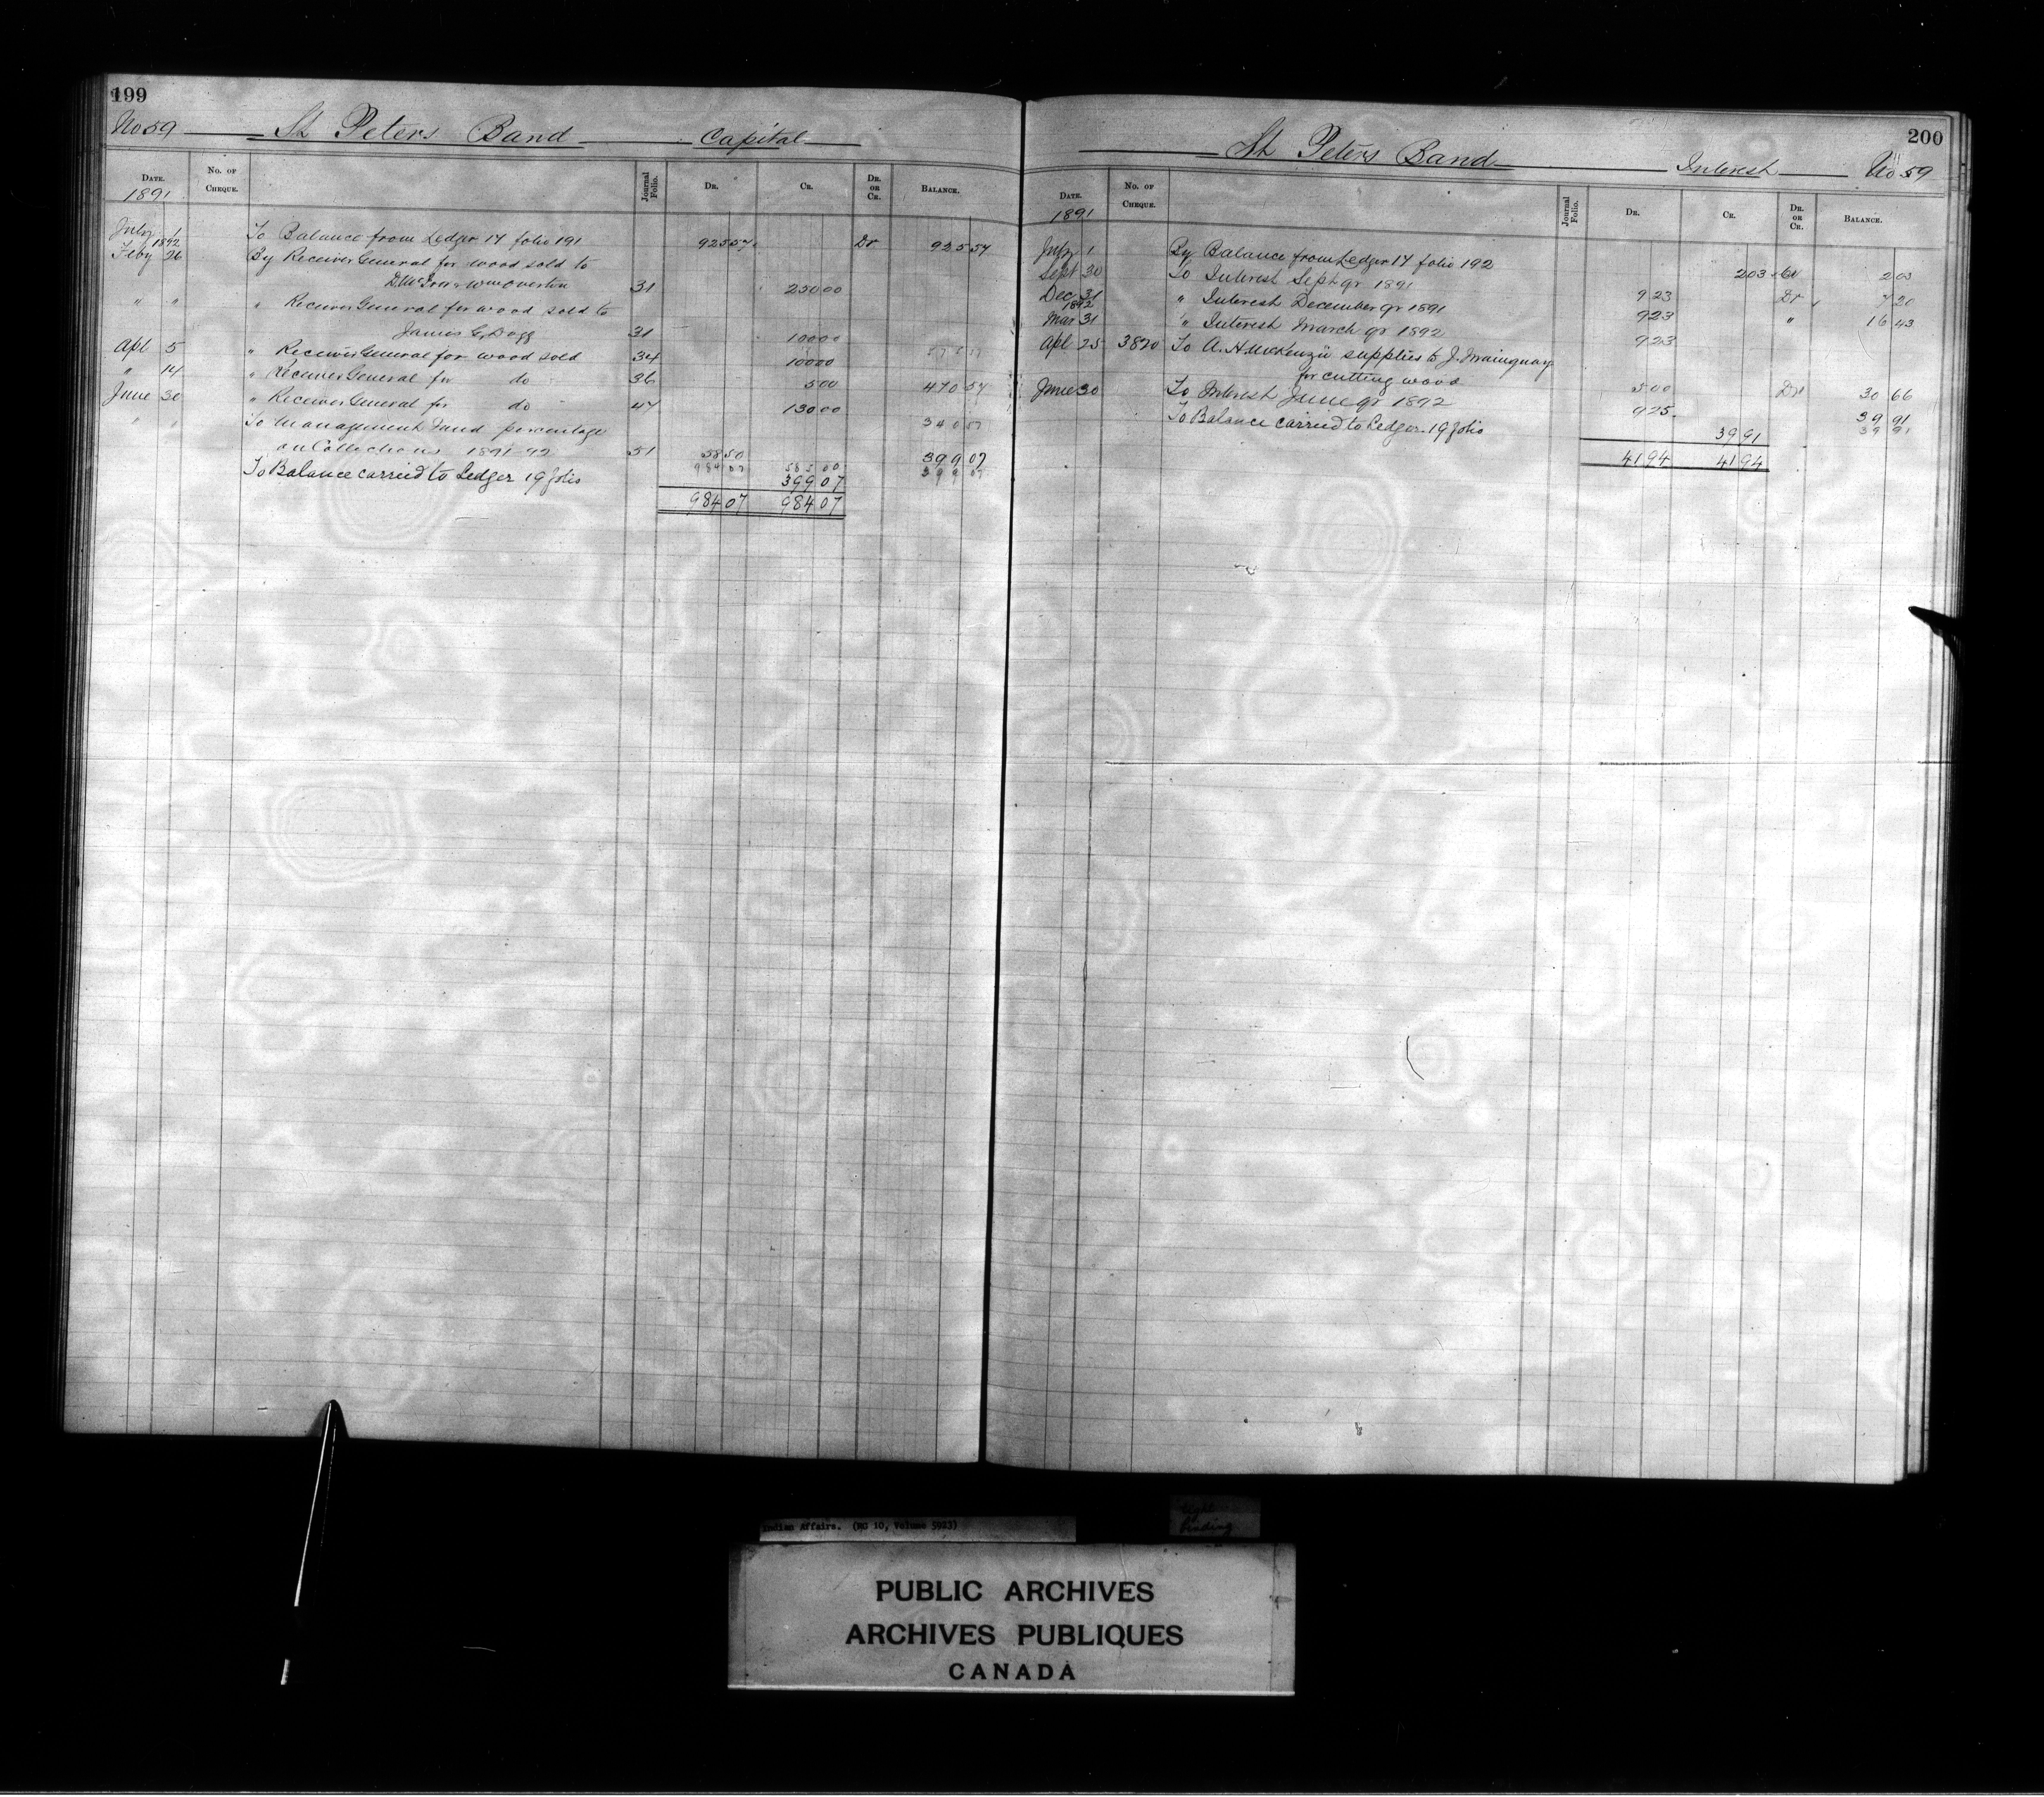 199
No 59 St Peters Band Capital
DATE. No. OF CHEQUE. Journal Folio. DR. CR. DR. OR CR. BALANCE.
1891
July 1 To Balance from Ledger 17 folio 191 925 57 Dr 925 57
1892
Feby 26 By Receiver General for wood sold to
31 250 00
" " " Receiver General for wood sold to
James C. Dagg 31 100 00
Apl 5 " Receiver General for wood sold 34 100 00 575 57
" 14 " Receiver General for do 36 5 00 470 57
June 30 " Receiver General for do 47 130 00
" " To Management Fund percentage 340 57
on Collections 1891-92 51 58 50 399 07
984 07 585 00 399 07
To Balance carried to Ledger 19 folio 399 07
984 07 984 07
200
St Peters Band Interest No 59
DATE. No. OF CHEQUE. Journal Folio. DR. CR. DR. OR CR. BALANCE.
1891
July 1 By Balance from Ledger 17 folio 192 2 03 Cr 2 03
Sept 30 To Interest Sept qr 1891 9 23 Dr 7 20
Dec 31 " Interest December qr 1891 9 23 " 16 43
1892
Mar 31 " Interest March qr 1892 9 23
Apl 25 3820 To A. H. McKenzie supplies to J.
for cutting wood 5 00 Dr 30 66
June 30 To Interest June qr 1892 9 25 39 91
To Balance carried to Ledger 19 folio 39 91 39 91
41 94 41 94
Indian Affairs. (RG 10, Volume 5923)
tight
binding
PUBLIC ARCHIVES
ARCHIVES PUBLIQUES
CANADA